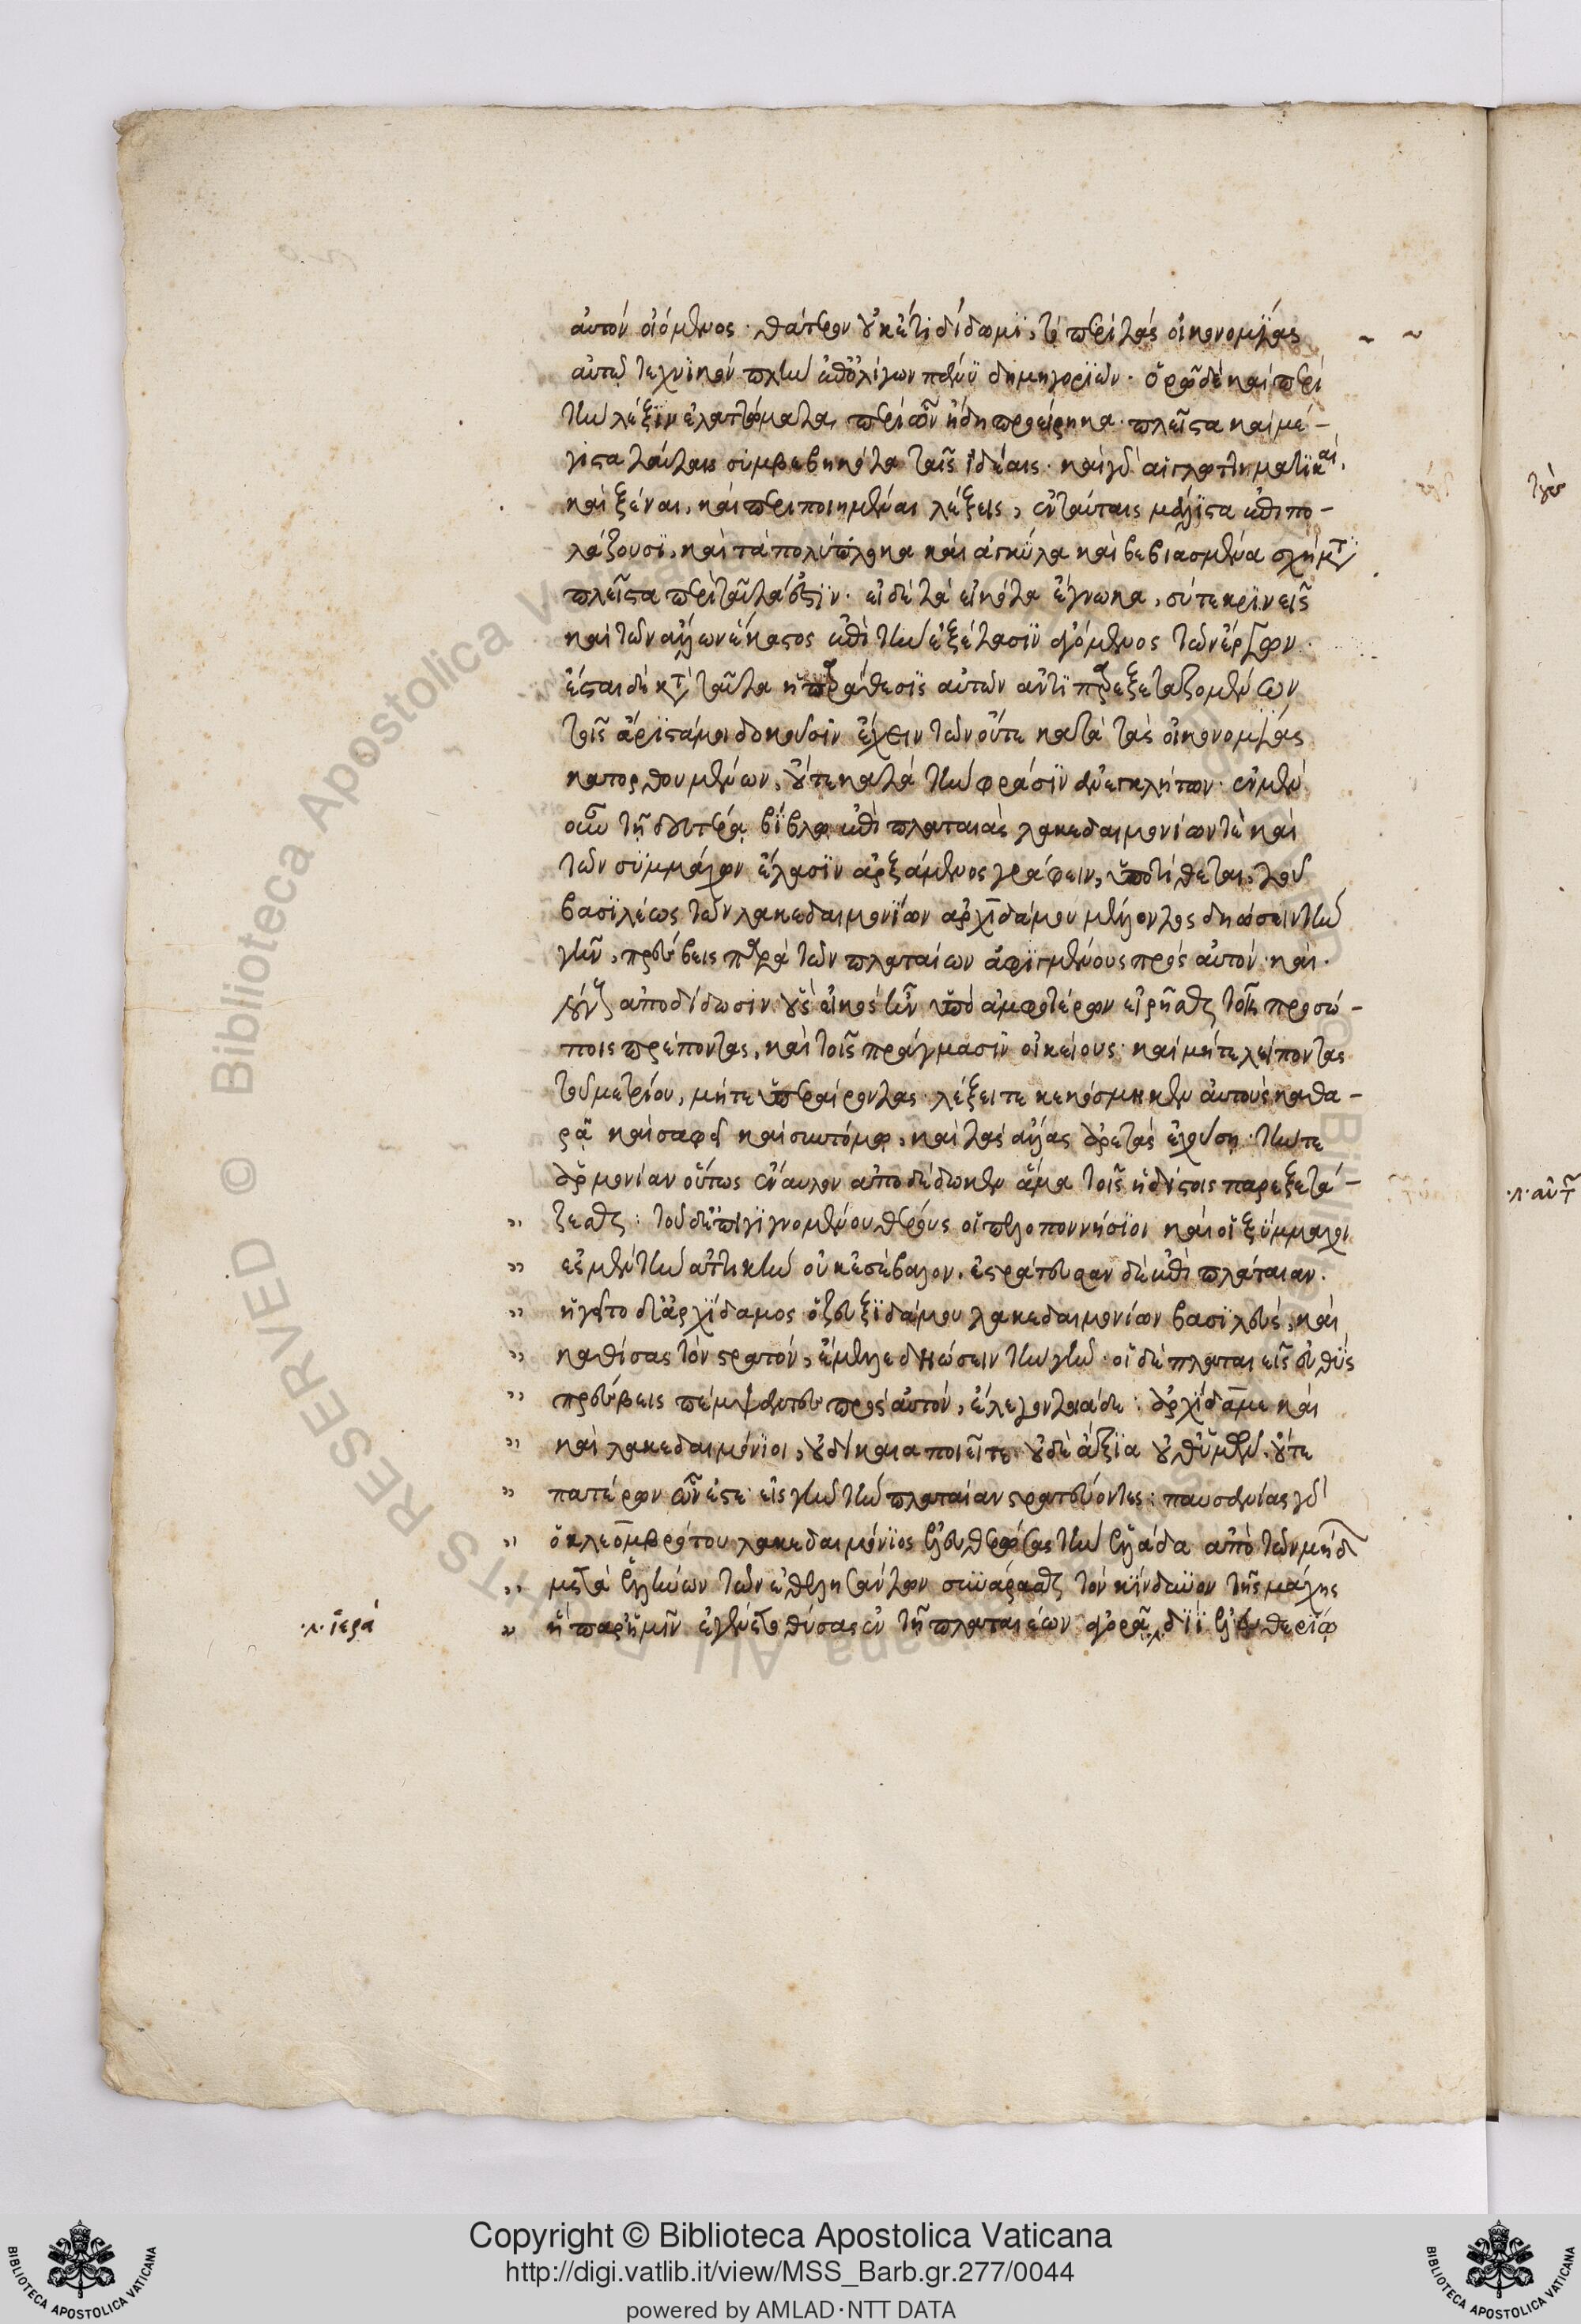 αὐτόν οἰόμενος· θάτερον οὐκέτι δίδωμι, τὸ περὶ τὰς οἰκονομίας
αὐτῶν τεχνικὸν πλὴν ἐπ' ὀλίγων πάνυ δημηγοριῶν· ὁρῶ δὲ καὶ περὶ
τὴν λέξιν ἐλαττώματα, περὶ ὧν ἤδη προείρηκα· πλεῖστα καὶ μέ-
γιστα ταύταις συμβεβηκότα ταῖς ἰδέαις· καὶ γὰρ αἱ γλωττηματικαὶ,
καὶ ξέναι, καὶ πεποιημέναι λέξεις, ἐν ταύταις μάλιστα ἐπιπο-
λάζουσι, καὶ τὰ πολύπλοκα καὶ ἀγκύλα καὶ βεβιασμένα σχήματα
πλεῖστα περὶ ταῦτά ἐστιν· εἰ δὲ τὰ εἰκότα ἔγνωκα, σύ τε κρινεῖς
καὶ τῶν ἄλλων ἕκαστος ἐπὶ τὴν ἐξέτασιν ἀγόμενος τῶν ἔργων·
ἔσται δὲ κατὰ ταῦτα ἡ παράθεσις αὐτῶν ἀντιπαρεξεταζομένων
τοῖς ἄριστά μοι δοκοῦσιν ἔχειν τῶν οὔτε κατὰ τὰς οἰκονομίας
κατορθουμένων, οὔτε κατὰ τὴν φράσιν ἀνεγκλήτων· ἐν μὲν
οὖν τῇ δευτέρᾳ βίβλῳ ἐπὶ πλαταιὰς λακεδαιμονίων τὲ καὶ
τῶν συμμάχων ἔλασιν ἀρξάμενος γράφειν, ὑποτίθεται, τοῦ
βασιλέως τῶν λακεδαιμονίων ἀρχιδάμου μέλλοντος δηώσειν τὴν
γῆν, πρέσβεις παρὰ τῶν πλαταιέων ἀφιγμένους πρὸς αὐτόν· καὶ
λόγους ἀποδίδωσιν οὓς εἰκὸς ἦν ὑπὸ ἀμφοτέρων εἰρῆσθαι τοῖς προσώ-
ποις πρέποντας, καὶ τοῖς πράγμασιν οἰκείους· καὶ μήτε λείποντας
τοῦ μετρίου, μήτε ὑπεραίροντας· λέξει τε κεκόσμηκεν αὐτοὺς καθα-
ρᾷ καὶ σαφεῖ καὶ συντόμῳ, καὶ τὰς ἄλλας ἀρετὰς ἐχούσῃ· τήν τε
ἁρμονίαν οὕτως ἔναυλον ἀποδέδωκεν ἅμα τοῖς ἡδίστοις παρεξετά-
ζεσθαι: τοῦ δ' ἐπιγιγνομένου θέρους οἱ πελοποννήσιοι καὶ οἱ ξύμμαχοι
ἐς μὲν τὴν ἀττικὴν οὐκ ἐσέβαλον, ἐστράτευσαν δὲ ἐπὶ πλάταιαν·
ἡγεῖτο δ' ἀρχίδαμος ὁ ζευξιδάμου λακεδαιμονίων βασιλεύς, καὶ
καθίσας τὸν στρατόν, ἔμελλε δηώσειν τὴν γῆν· οἱ δὲ πλαταιεῖς εὐθὺς
πρέσβεις πέμψαντες πρὸς αὐτόν, ἔλεγον τοιάδε: ἀρχίδαμε καὶ
καὶ λακεδαιμόνιοι, οὐ δίκαια ποιεῖτε οὐδὲ ἄξια οὔθ' ὑμῶν· οὔτε
πατέρων ὧν ἐστε εἰς γῆν τὴν πλαταίαν στρατεύοντες: παυσανίας γὰρ
ὁ κλεομβρότου λακεδαιμόνιος ἐλευθερώσας τὴν ἑλλάδα ἀπὸ τῶν μήδων
μετὰ ἑλλήνων τῶν ἐθελησάντων συνάρασθαι τὸν κίνδυνον τῆς μάχης
·λ· ἱερά ἣ παρ' ἡμῖν ἐγένετο θύσας ἐν τῇ πλαταιέων ἀγορᾷ, διῒ ἐλευθερίῳ
·λ· αὐτ
Copyright © Biblioteca Apostolica Vaticana
http://digi.vatlib.it/view/MSS_Barb.gr.277/0044
powered by AMLAD·NTT DATA
BIBLIOTECA APOSTOLICA VATICANA
BIBLIOTECA APOSTOLICA VATICANA